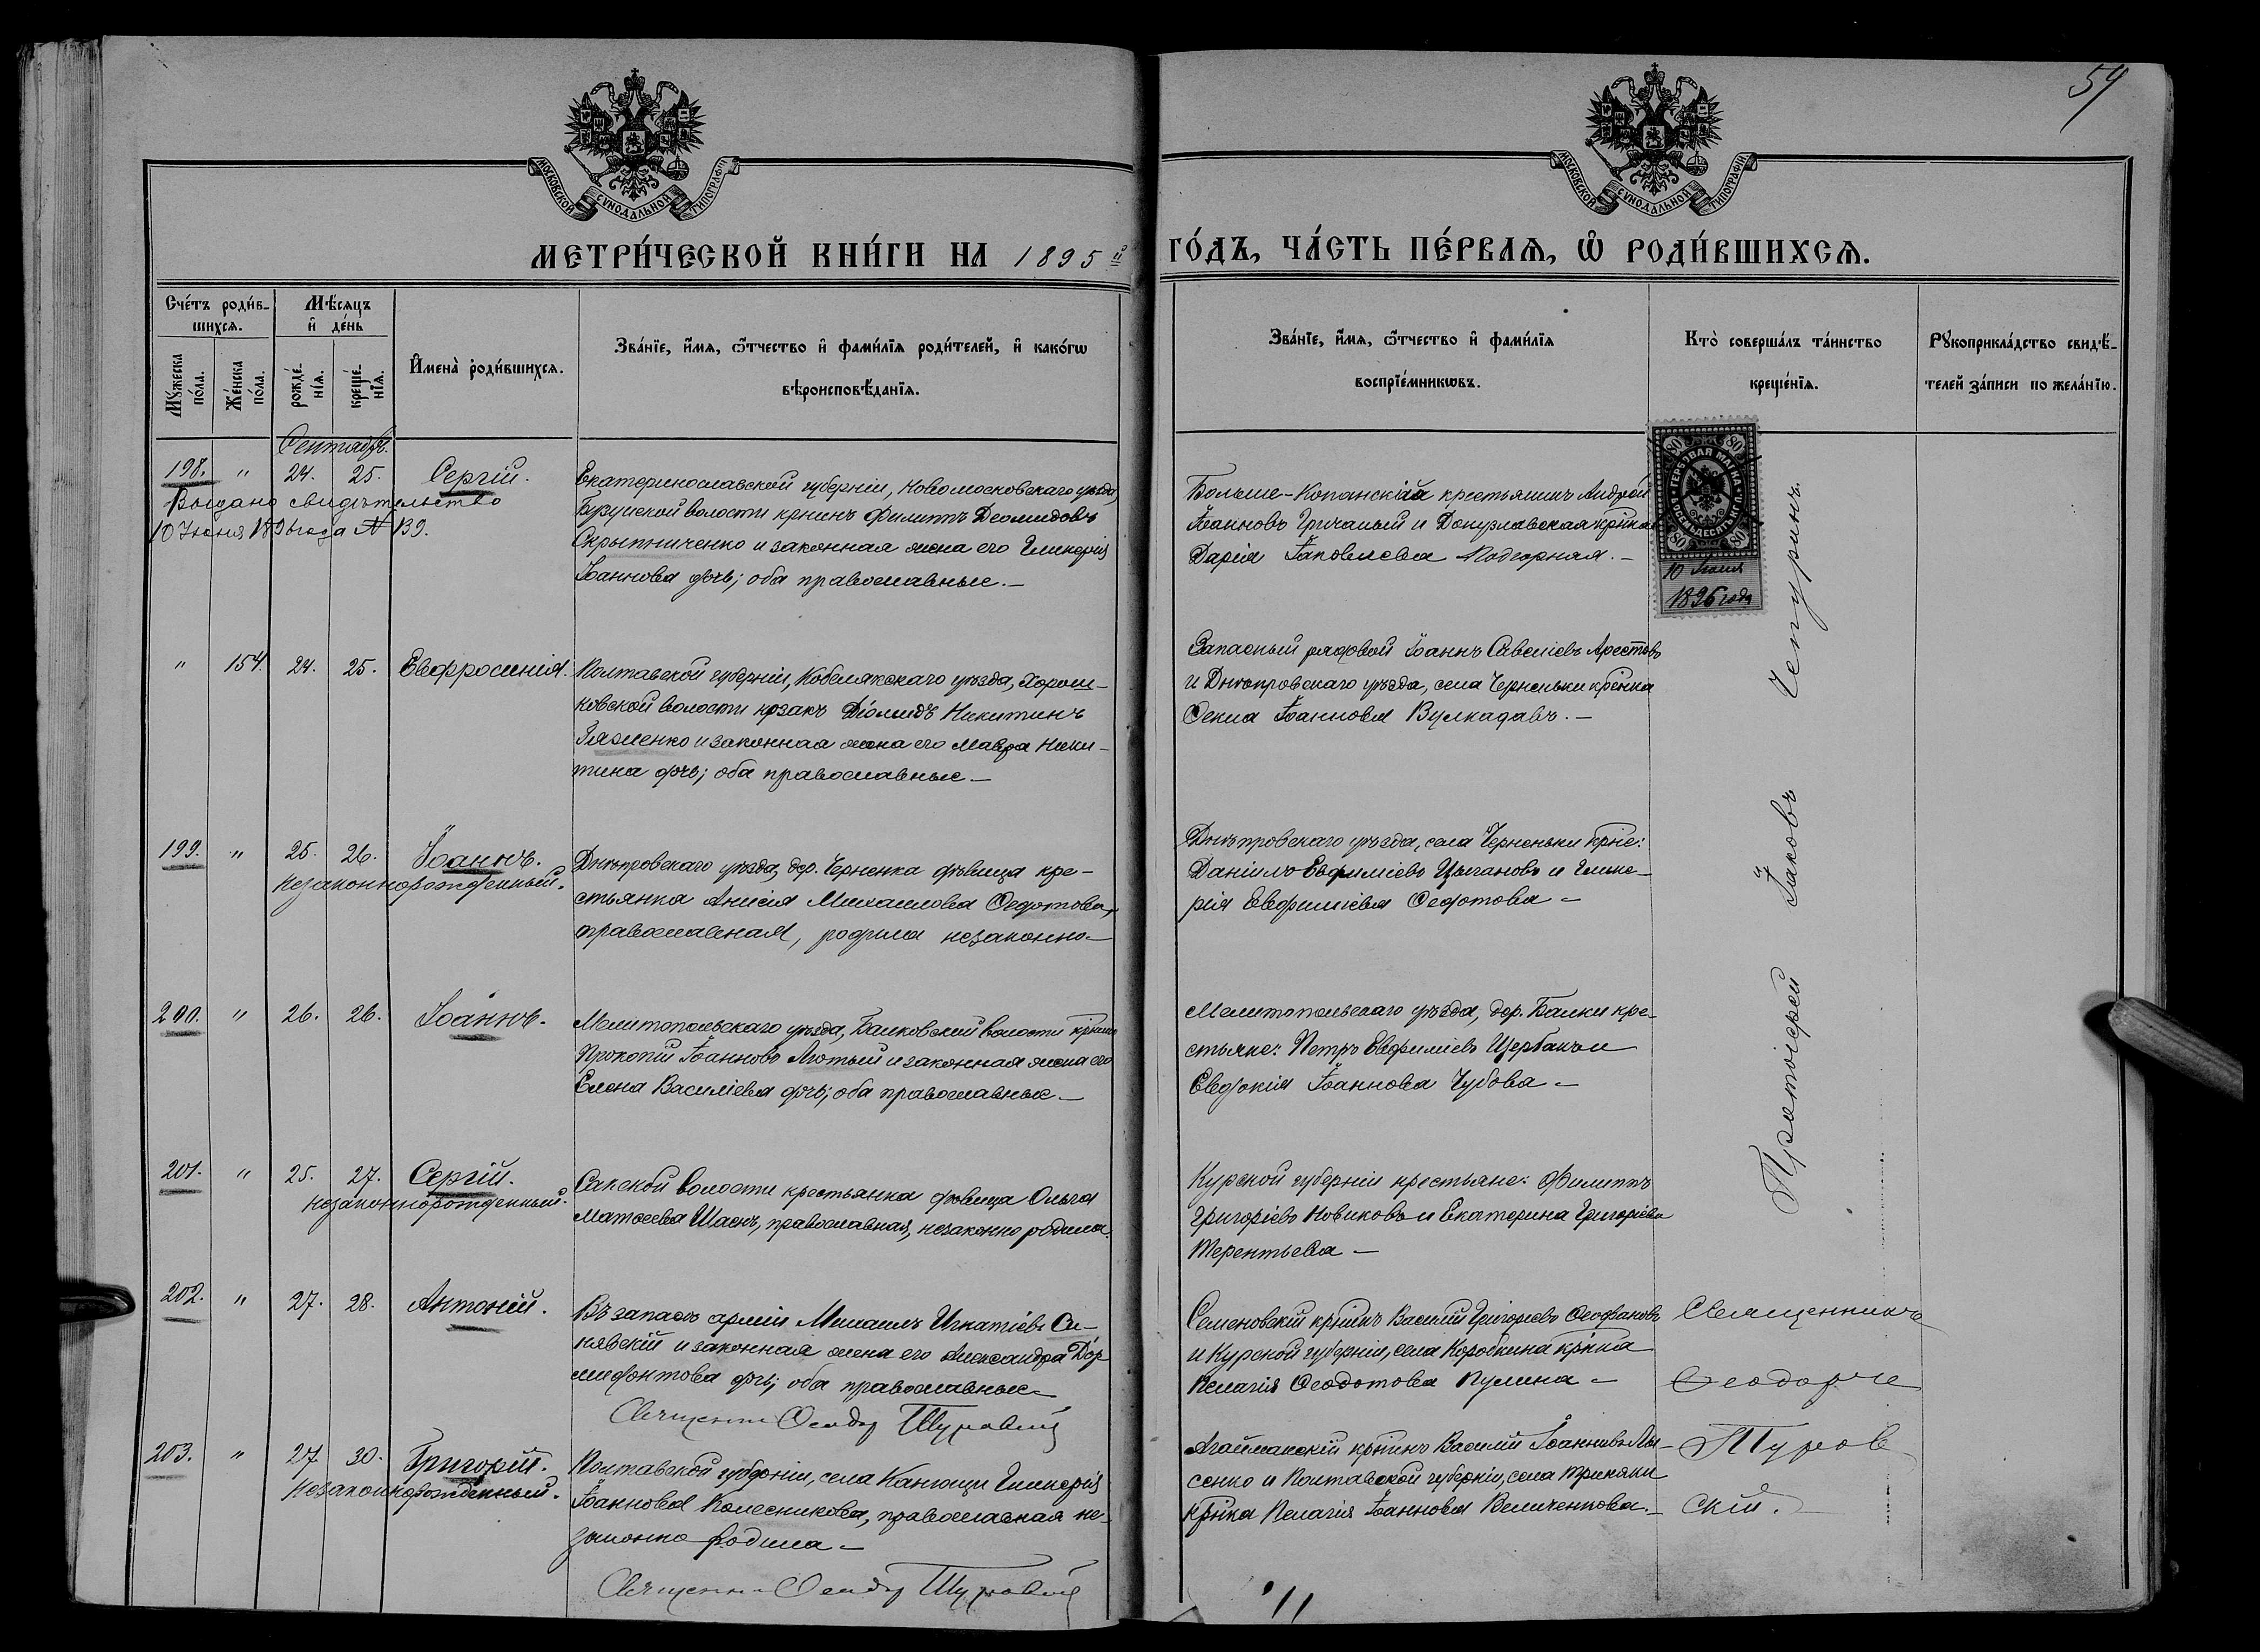 59
МОСКОВСКОЙ СѴНОДАЛЬНОЙ ТИПОГРАФІИ
МОСКОВСКОЙ СѴНОДАЛЬНОЙ ТИПОГРАФІИ
МЕТРИ́ЧЕСКОЙ КНИ́ГИ НА 1895 й ГО́ДЪ, ЧА́СТЬ ПЕ́РВАѦ, Ѽ РОДИ́ВШИХСѦ.
Сче́тъ роди́в-
шихсѧ.
Мѣ́сѧцъ
и де́нь
Му́жеска по́ла.
Же́нска по́ла.
рожде́-
нїѧ.
креще́-
нїѧ.
Имена̀ роди́вшихсѧ.
Зва́нїе, и́мѧ, ѻ́тчество и фами́лїѧ роди́телей, и како́гѡ
вѣроисповѣ́данїѧ.
Зва́нїе, и́мѧ, ѻ́тчество и фами́лїѧ
воспрїе́мникѡвъ.
Кто̀ соверша́лъ та́инство
креще́нїѧ.
Рꙋкоприкла́дство свидѣ́-
телей за́писи по жела́нїю.
Сентябрь.
198. " 24. 25. Сергій.
Выдано свидѣтельство
10 Іюня 1896 года № 139.
Екатеринославской губерніи, Новомосковскаго уѣзда,
волости кр̃нинъ Филиппъ Деомидовъ
Скрыпниченко и законная жена его Гликерія
Іоаннова дочь; оба православные. —
Больше-Копанскій крестьянинъ Андрей
Іоанновъ Гричаный и Донузлавская кр̃нка
Дарія Іаковлева Подгорная. —
ГЕРБОВАЯ МАРКА ВОСЕМЬДЕСЯТЪ КОП.
80 80
80 80
10 Іюня
1896 года
" 154. 24. 25. Евфросинія.
Полтавской губерніи, Кобелякскаго уѣзда, Хорош-
ковской волости козакъ Діомидъ Никитинъ
и законная жена его Мавра Ники-
тина дочь; оба православные —
Запасный рядовой Іоаннъ Савеліевъ Арестовъ
и Днѣпровскаго уѣзда, села Черненьки кр̃нка
Іоаннова Вулкадавъ. —
199. " 25. 26. Іоаннъ.
незаконнорожденный.
Днѣпровскаго уѣзда, дер. Черненка дѣвица кре-
стьянка Анисія Михаилова Ѳедотова,
православная, родила незаконно —
Днѣпровскаго уѣзда, села Черненьки кр̃не:
Даніилъ Евфиміевъ Цыгановъ и Глике-
рія Евфиміева Ѳедотова —
200. " 26. 26. Іоаннъ.
Мелитопольскаго уѣзда, Балковской волости кр̃нинъ
Прокопій Іоанновъ Лютый и законная жена его
Елена Василіева дочь; оба православные —
Мелитопольскаго уѣзда, дер. Балки кре-
стьяне: Петръ Евфиміевъ Щербакъ и
Евдокія Іоаннова Чубова —
201. " 25. 27. Сергій.
незаконнорожденный.
Сакской волости крестьянка дѣвица Ольга
Матѳеева Шаенъ, православная, незаконно родила.
Курской губерніи крестьяне: Филиппъ
Григоріевъ Новиковъ и Екатерина Григоріева
Терентьева —
Протоіерей Іаковъ Чепуринъ.
202. " 27. 28. Антоній.
Въ запасѣ арміи Михаилъ Игнатіевъ Си-
нявскій и законная жена его Александра Дор-
мидонтова дочь; оба православные —
Священникъ Ѳеодоръ Туровскій
Семеновскій кр̃нинъ Василій Григоріевъ Ѳеофановъ
и Курской губерніи, села Коробкина кр̃нка
Пелагія Ѳеодотова Пулина —
Священникъ
Ѳеодоръ
Туров
скій.
203. " 27. 30. Григорій.
Незаконнорожденный.
Полтавской губерніи, села Канюци Гликерія
Іоаннова Колесникова, православная не-
законно родила —
Священникъ Ѳеодоръ Туровскій
Агайманскій кр̃нинъ Василій Іоанновъ Лы-
сенко и Полтавской губерніи, села
кр̃нка Пелагія Іоаннова Величенкова. —